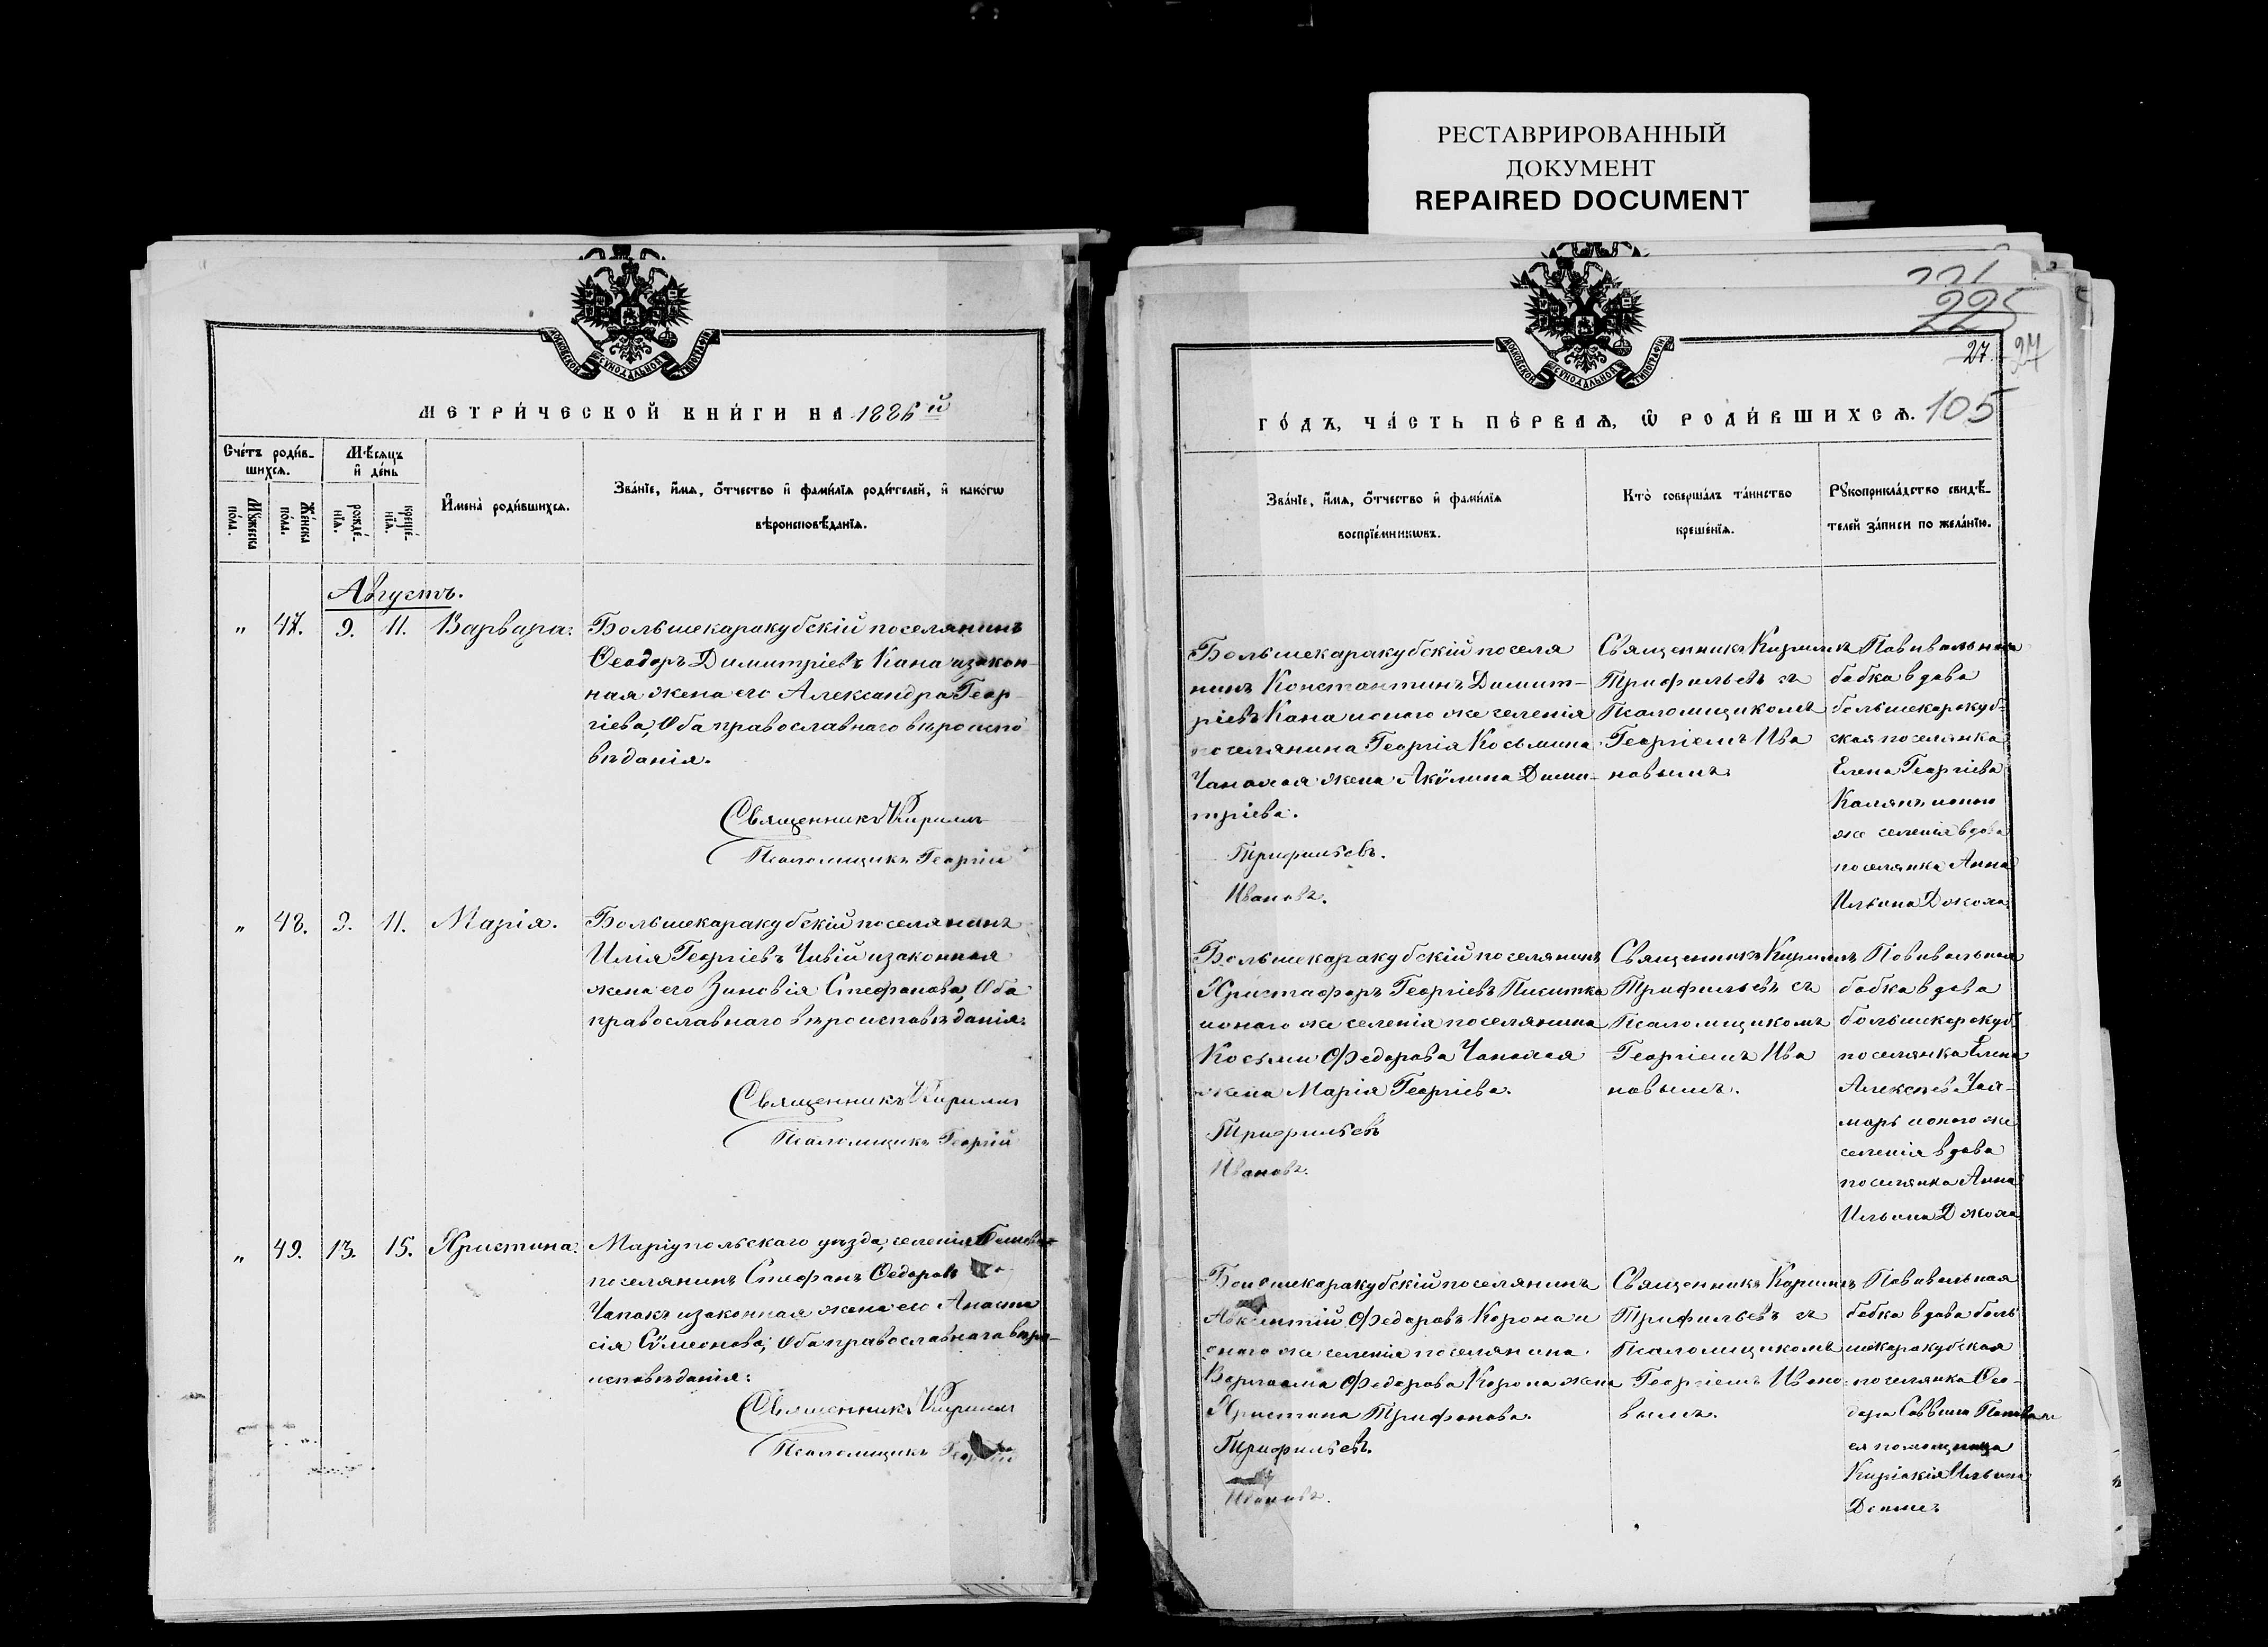 РЕСТАВРИРОВАННЫЙ
ДОКУМЕНТ
REPAIRED DOCUMENT
МЕТРИ́ЧЕСКОЙ КНИ́ГИ НА 1886й
Сче́тъ роди́в-
шихсѧ.
Мѣ́сѧцъ
и҆ де́нь
Мꙋ́жеска
по́ла.
Же́нска
по́ла.
рожде́-
нїѧ.
креще́-
нїѧ.
И҆мена̀ роди́вшихсѧ.
Зва́нїе, и҆́мѧ, ѻ҆́тчество и҆ фами́лїѧ роди́телей, и҆ како́гѡ
вѣроисповѣ́данїѧ.
Августъ.
" 47. 9. 11. Варвара.
Большекаракубскій поселянинъ
Ѳеодоръ Димитріевъ Кана и закон-
ная жена его Александра Геор-
гіева, Оба православнаго вѣроиспо
вѣданія.
Священникъ Кириллъ
Псаломщикъ Георгій
" 48. 9. 11. Марія.
Большекаракубскій поселянинъ
Илія Георгіевъ Чивій и законная
жена его Зиновія Стефанова, Оба
православнаго вѣроисповѣданія.
Священникъ Кириллъ
Псаломщикъ Георгій
" 49. 13. 15. Христина.
Маріупольскаго уѣзда, селенія
поселянинъ Стефанъ Ѳедоровъ
Чапакъ и законная жена его Анаста
сія Сѵмеонова, Оба православнаго вѣро-
исповѣданія.
Священникъ Кириллъ
Псаломщикъ Георгій
225
27
27
105
ГО́ДЪ, ЧА́СТЬ ПЕ́РВАѦ, Ѡ҆ РОДИ́ВШИХСѦ.
Зва́нїе, и҆́мѧ, ѻ҆́тчество и҆ фами́лїѧ
воспрїе́мникѡвъ.
Кто̀ соверша́лъ та́инство
креще́нїѧ.
Рꙋкоприкла́дство свидѣ́-
телей за́писи по жела́нїю.
Большекаракубскій поселя
нинъ Константинъ Димит-
ріевъ Кана и оного же селенія
поселянина Георгія Косьмина
жена Акѵлина Дими-
тріева.
Трифильевъ.
Ивановъ.
Священникъ Кириллъ
Трифильевъ съ
Псаломщикомъ
Георгіемъ Ива
новымъ.
Повивальная
бабка вдова
большекаракуб-
ская поселянка
Елена Георгіева
Калянъ и оного
же селенія вдова
поселянка Анна
Ильина Джола
Большекаракубскій поселянинъ
Христофоръ Георгіевъ Пичитка
и оного же селенія поселянина
Косьми Ѳедорова
жена Марія Георгіева.
Трифильевъ
Ивановъ.
Священникъ Кириллъ
Трифильевъ съ
Псаломщикомъ
Георгіемъ Ива
новымъ.
Повивальная
бабка вдова
большекаракуб
поселянка Елена
и оного же
селенія вдова
поселянка Анна
Ильина Джола
Большекаракубскій поселянинъ
Авксентій Федоровъ Корона и
оного же селенія поселянина
Федорова Корона жена
Христина Трифонова.
Трифильевъ.
Ивановъ.
Священникъ Кириллъ
Трифильевъ съ
Псаломщикомъ
Георгіемъ Ивано-
вымъ.
Повивальная
бабка вдова боль
шекаракубская
поселянка Ѳео-
дора Саввина
ея помощница
Киріакія Ильина